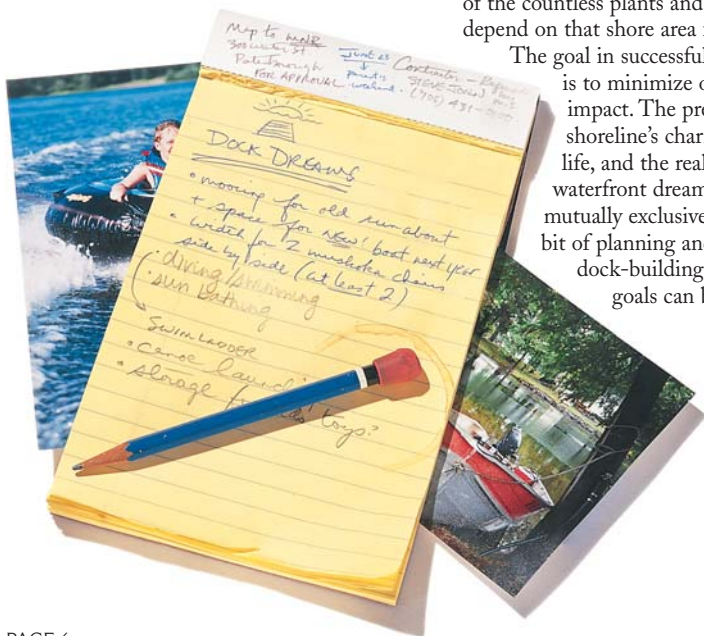 of the countless plants and
depend on that shore area
The goal in successful
is to minimize
impact. The
shoreline's
life, and the real
waterfront dream
mutually exclusive
bit of planning and
dock-building
goals can
Map to MNR
300 Water St
Peterborough
FOR APPROVAL
June 23
parents
weekend
Contractor -
STEVE
(705) 431-
DOCK DREAMS
• mooring for old runabout
+ space for NEW! boat next year
• width for 2 muskoka chairs
side by side (at least 2)
• diving/swimming
• sun bathing
SWIM LADDER
• canoe
• storage toys?
PAGE